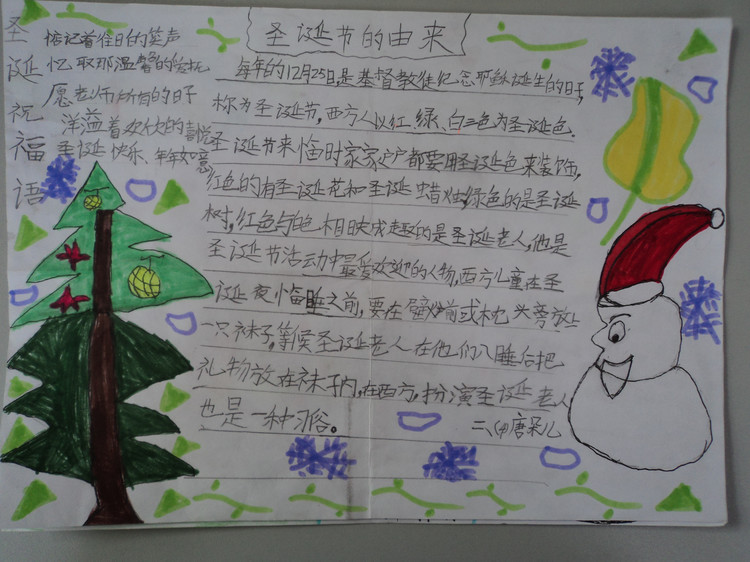 圣诞祝福语
惦记着往日的笑声
忆取那温馨的爱抚
愿老师所有的日子
洋溢着欢快的喜悦
圣诞快乐、年年如意
圣诞节的由来
每年的12月25日是基督教徒纪念耶稣诞生的日子,
称为圣诞节,西方人以红、绿、白三色为圣诞色.
圣诞节来临时家家户户都要用圣诞色来装饰,
红色的有圣诞花和圣诞蜡烛,绿色的是圣诞
树,红色与白色相映成趣的是圣诞老人,他是
圣诞节活动中最受欢迎的人物,西方儿童在圣
诞夜临睡之前,要在壁炉前或枕头旁放上
一只袜子,等候圣诞老人在他们入睡后把
礼物放在袜子内,在西方,扮演圣诞老人
也是一种习俗。
二、(4)唐朵儿